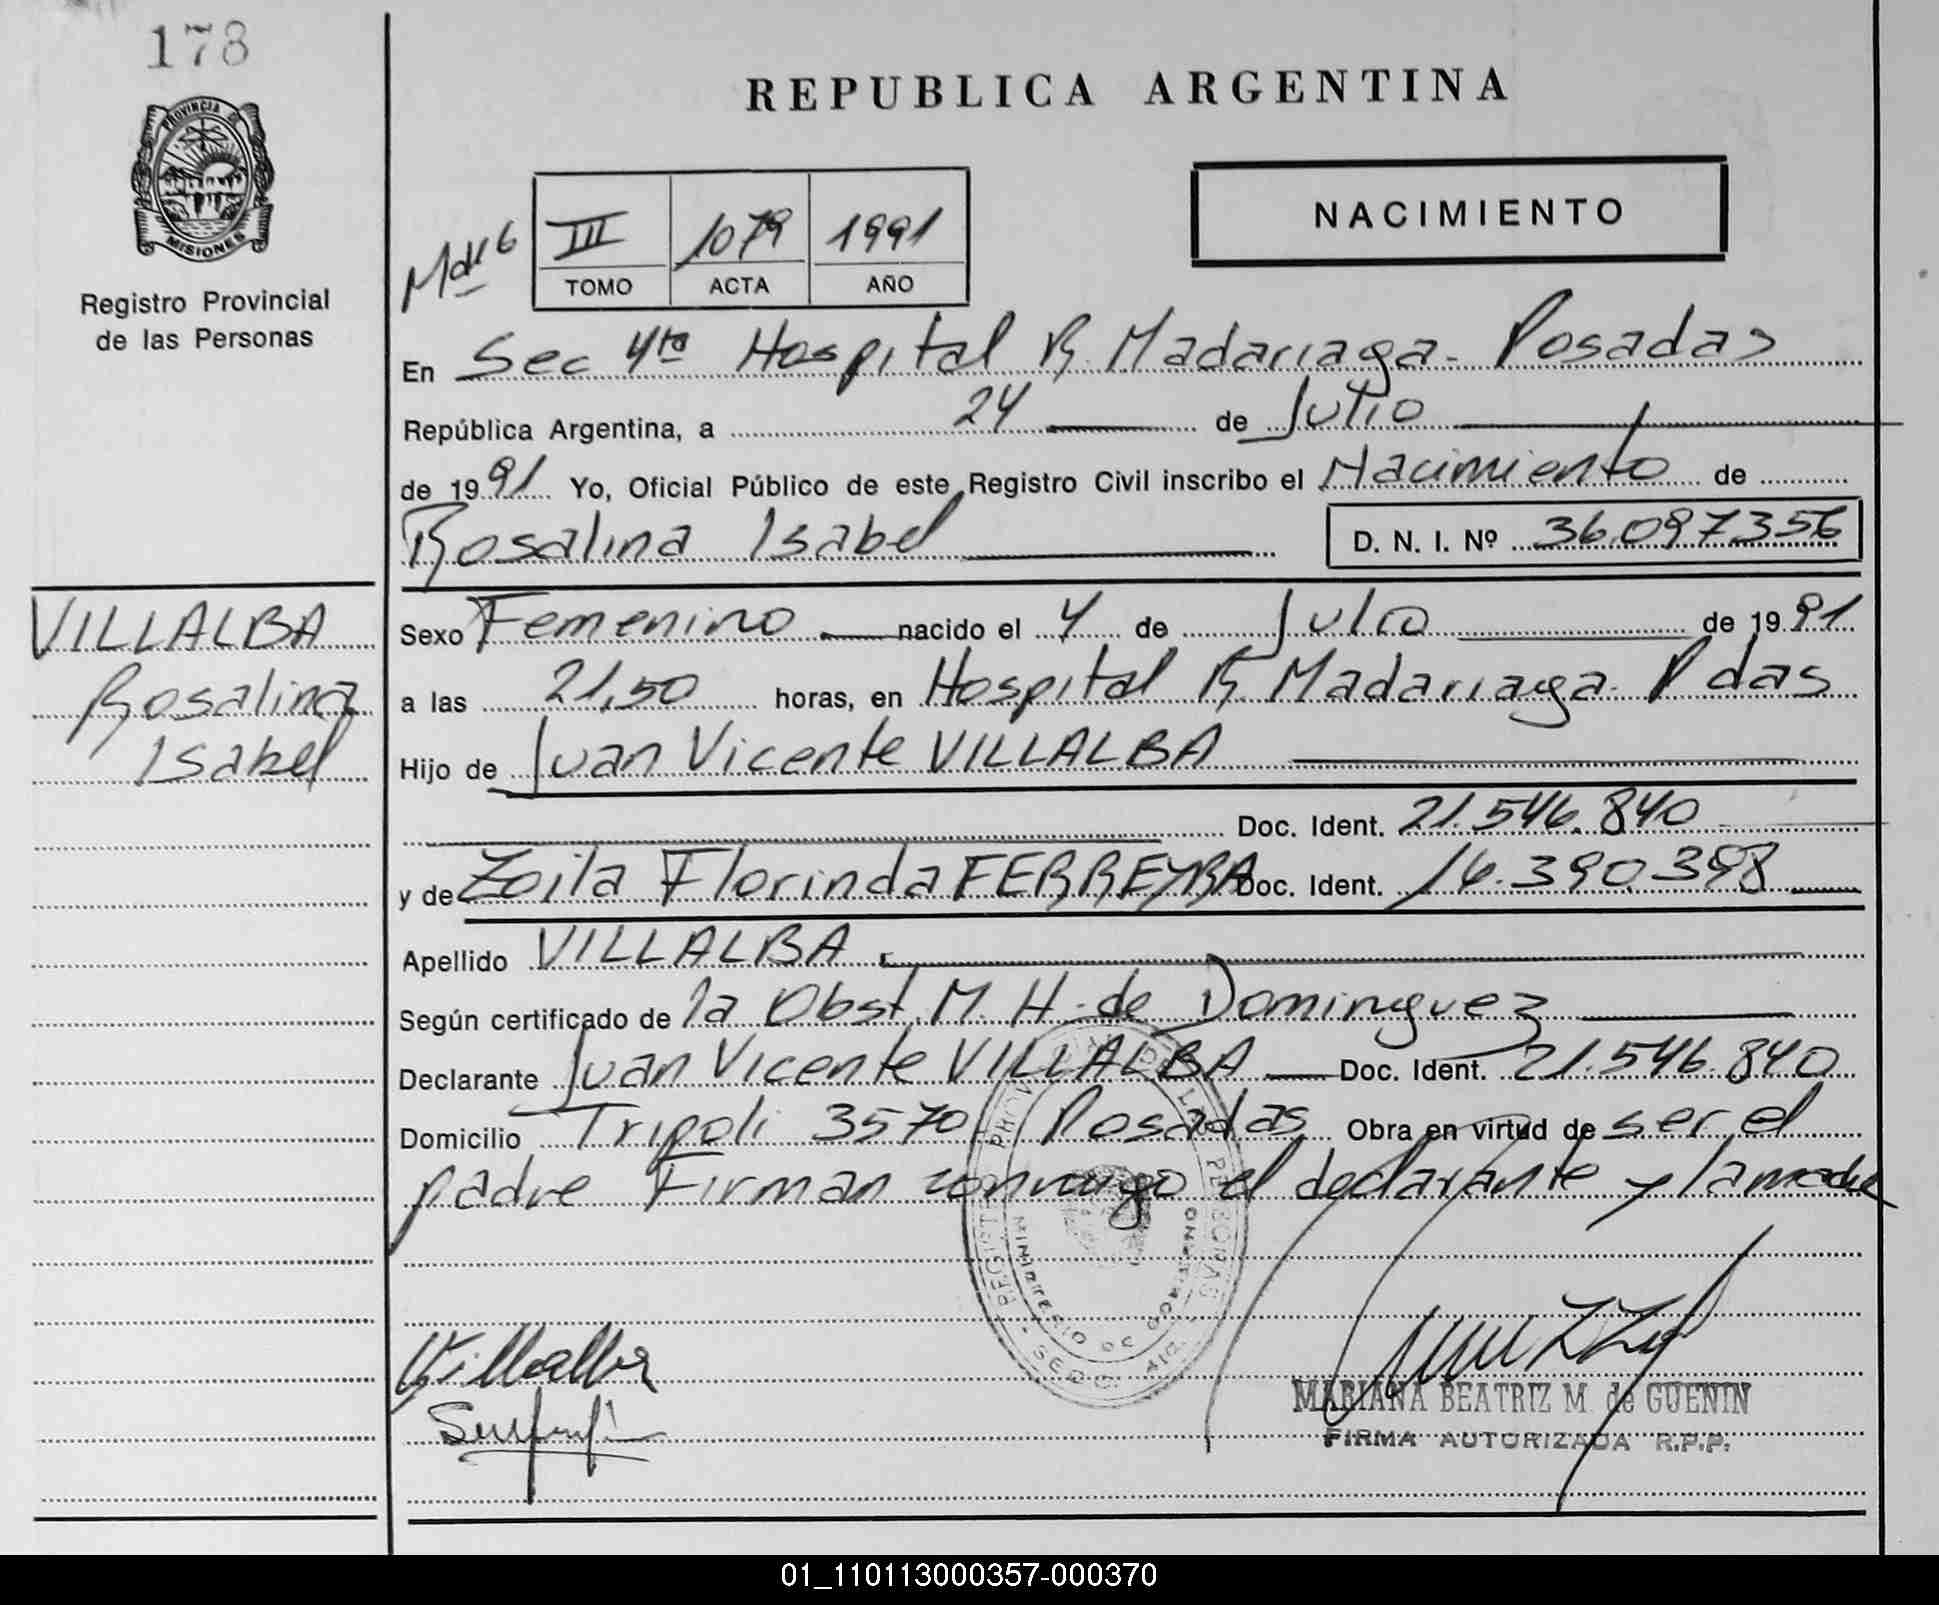 178
PROVINCIA DE
MISIONES
Registro Provincial
de las Personas
REPUBLICA ARGENTINA
NACIMIENTO
III 1079 1991
TOMO ACTA AÑO
En Sec 4ta Hospital R. Madariaga - Posadas
República Argentina, a 24 de Julio
de 1991 Yo, Oficial Público de este Registro Civil inscribo el Nacimiento de
Rosalina Isabel D. N. I. Nº 36.097.356
VILLALBA
Rosalina
Isabel
Sexo Femenino nacido el 4 de Julio de 1991
a las 21,50 horas, en Hospital R. Madariaga - Pdas
Hijo de Juan Vicente VILLALBA
Doc. Ident. 21.546.840
y de Zoila Florinda FERREYRA Doc. Ident. 16.390.398
Apellido VILLALBA
Según certificado de la Obst. M. H. de Dominguez
Declarante Juan Vicente VILLALBA Doc. Ident. 21.546.840
Domicilio Tripoli 3570 Posadas Obra en virtud de ser el
padre Firman conmigo el declarante y la madre
Villalba
MARIANA BEATRIZ M. de GUENIN
FIRMA AUTORIZADA R.P.P.
01_110113000357-000370